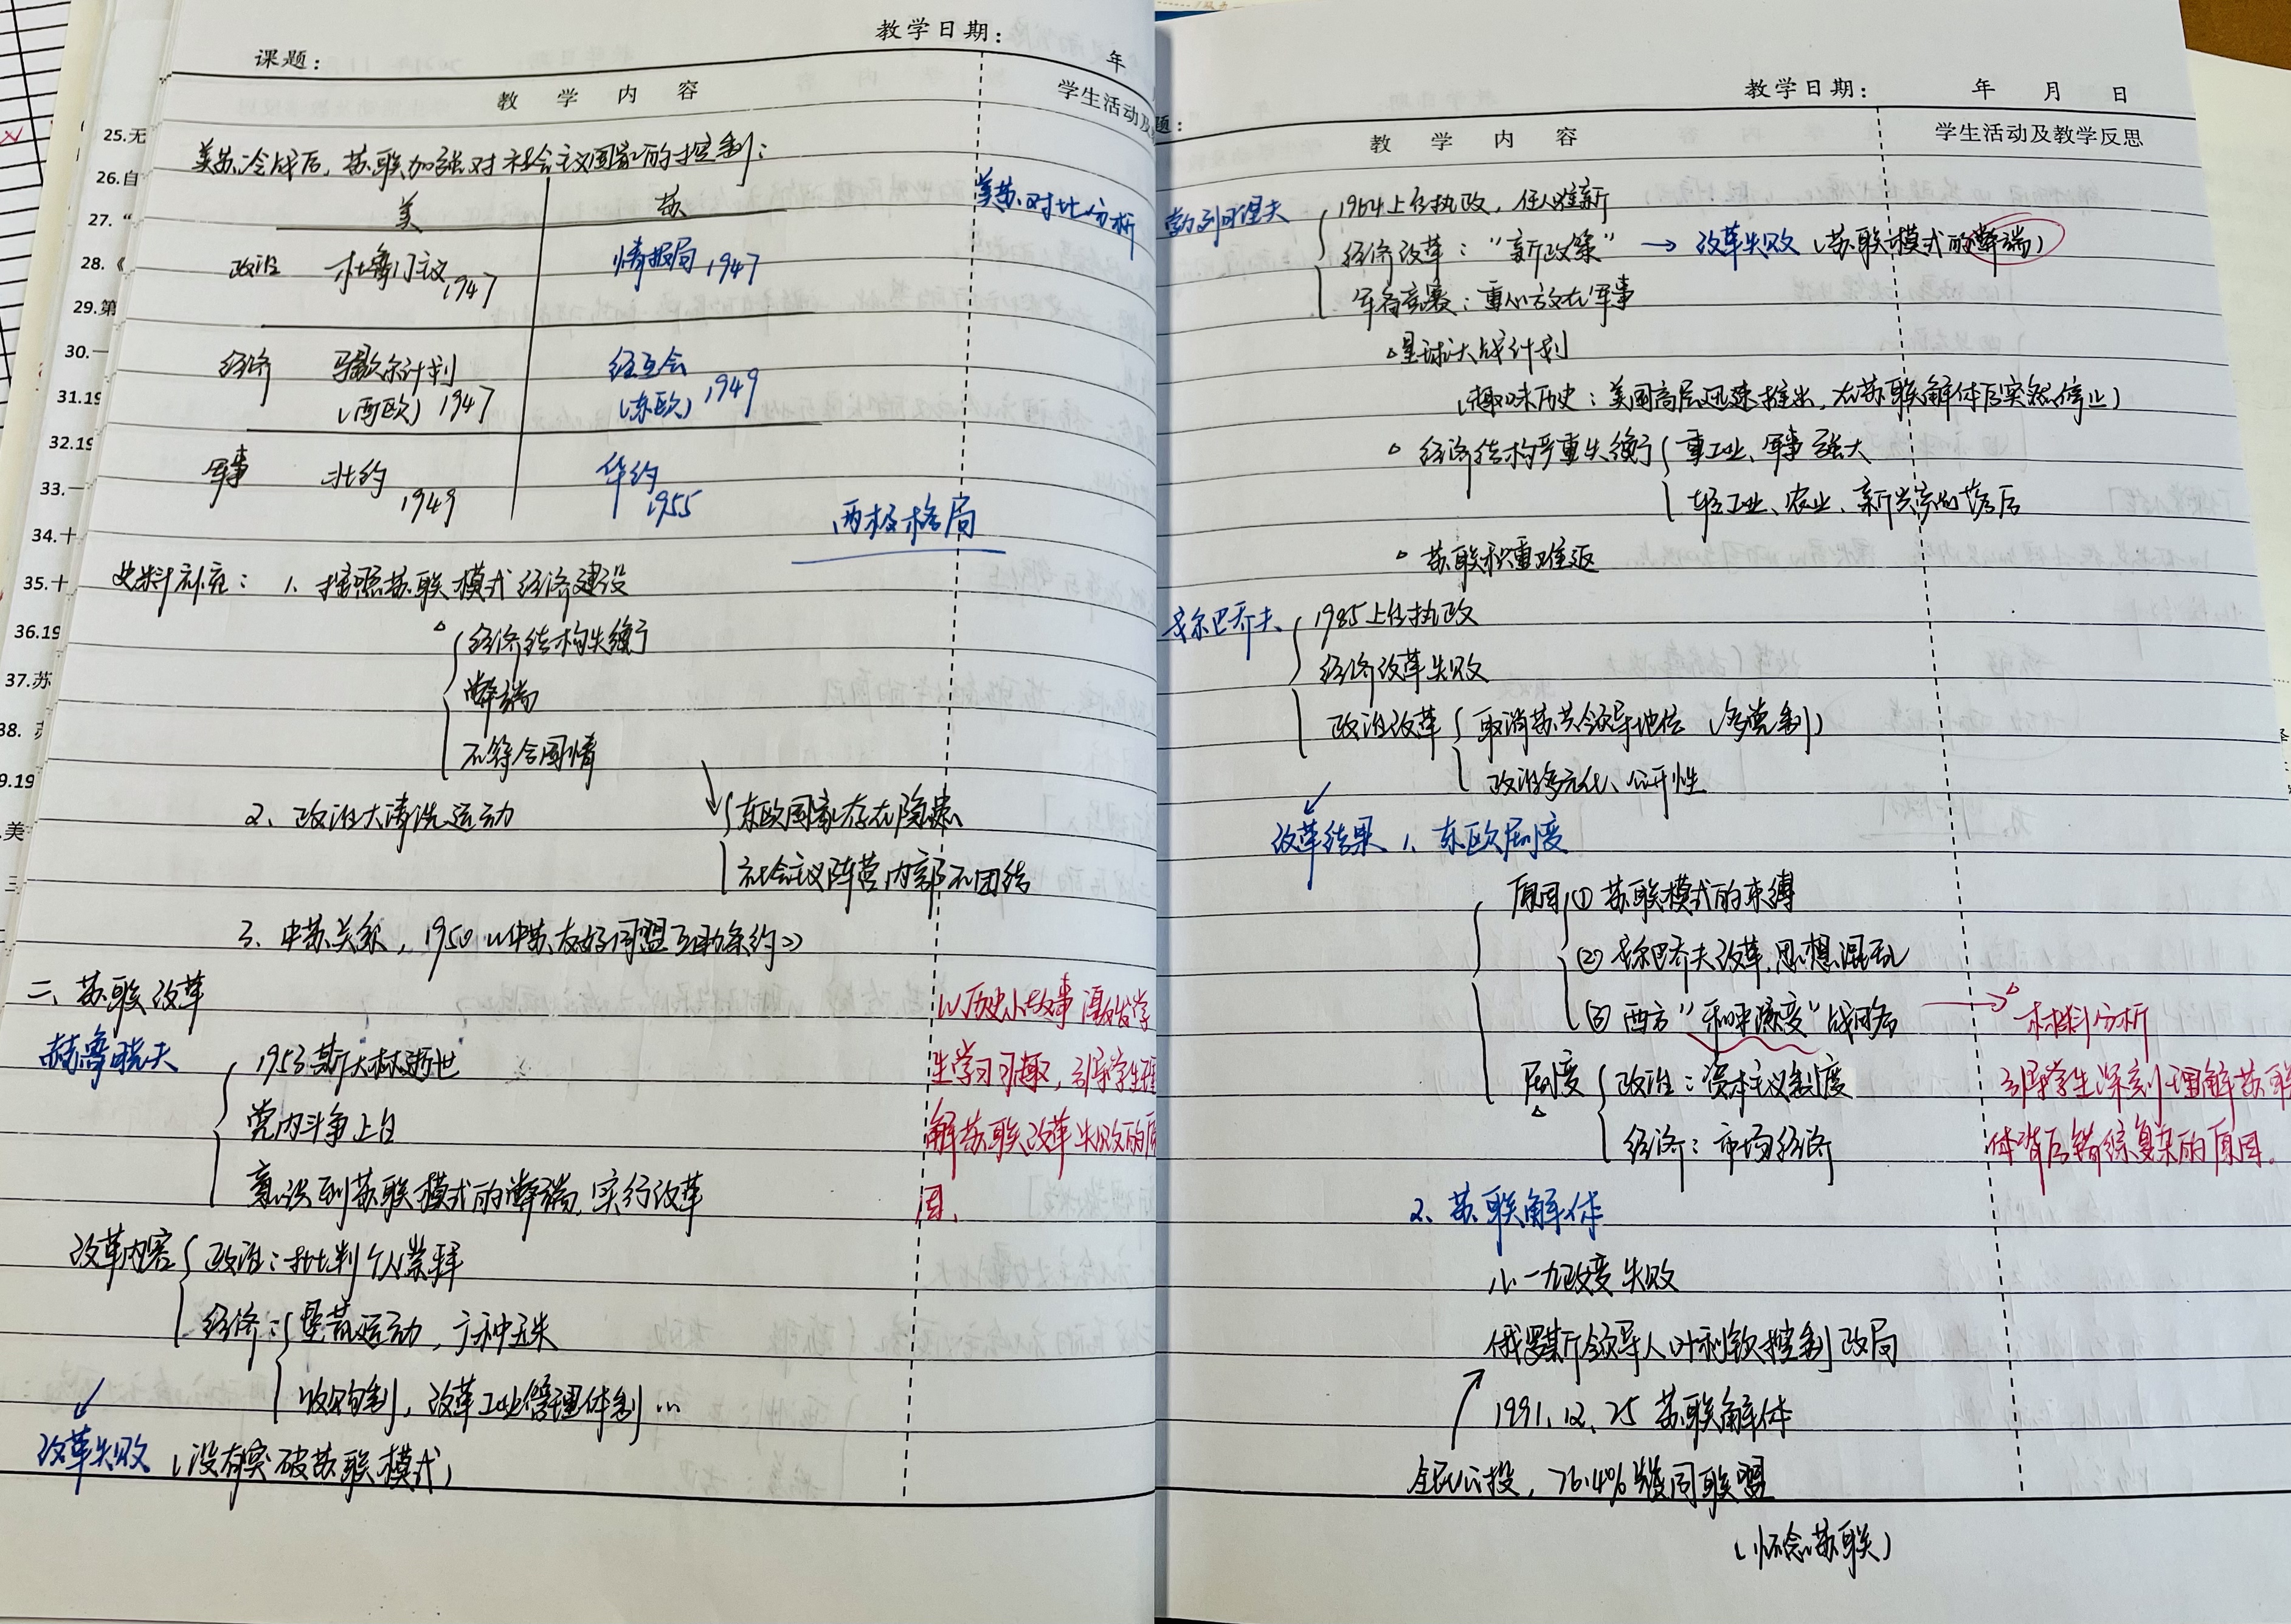 课题：
教学日期：
年
教 学 内 容
学生活动及
25.无
26.自
27. “
28.《
29.第
30.一
31.19
32.19
33.一
34.十
35.十
36.19
37.苏
38.
9.19
美
三
美苏冷战后，苏联加强对社会主义国家的控制：
美 苏
美苏对比分析
政治 杜鲁门主义 1947 情报局 1947
经济 马歇尔计划 经互会
（西欧）1947 （东欧）1949
军事 北约 1949 华约 1955
两极格局
史料补充：1、按照苏联模式经济建设
经济结构失衡
弊端
不符合国情
2、政治大清洗运动
东欧国家存在隐患
社会主义阵营内部不团结
3、中苏关系，1950《中苏友好同盟互助条约》
二、苏联改革
赫鲁晓夫
1953斯大林逝世
党内斗争上台
意识到苏联模式的弊端，实行改革
以历史小故事激发学
生学习习趣，引导学生理
解苏联改革失败的原
因、
改革内容 政治：批判个人崇拜
经济：垦荒运动，广种玉米
收购制，改革工业管理体制…
改革失败（没有突破苏联模式）
题：
教学日期： 年 月 日
教 学 内 容
学生活动及教学反思
勃列日涅夫
1964上台执政，任人唯新
经济改革：“新政策” → 改革失败（苏联模式的弊端）
军备竞赛：重心放在军事
星球大战计划
（趣味历史：美国高层迅速推出，在苏联解体后突然停止）
经济结构严重失衡 重工业、军事强大
轻工业、农业、新兴产的落后
苏联积重难返
戈尔巴乔夫
1985上台执政
经济改革失败
政治改革 取消苏共领导地位（多党制）
政治多元化、公开性
改革结果 1、东欧剧变
原因① 苏联模式的束缚
② 戈尔巴乔夫改革，思想混乱
③ 西方“和平演变”战略
→ 材料分析
引导学生深刻理解苏联
体背后错综复杂的原因。
剧变 政治：资本主义制度
经济：市场经济
2、苏联解体
八一九政变失败
俄罗斯领导人叶利钦控制政局
1991.12.25 苏联解体
全民公投，76.4%赞同联盟
（怀念苏联）